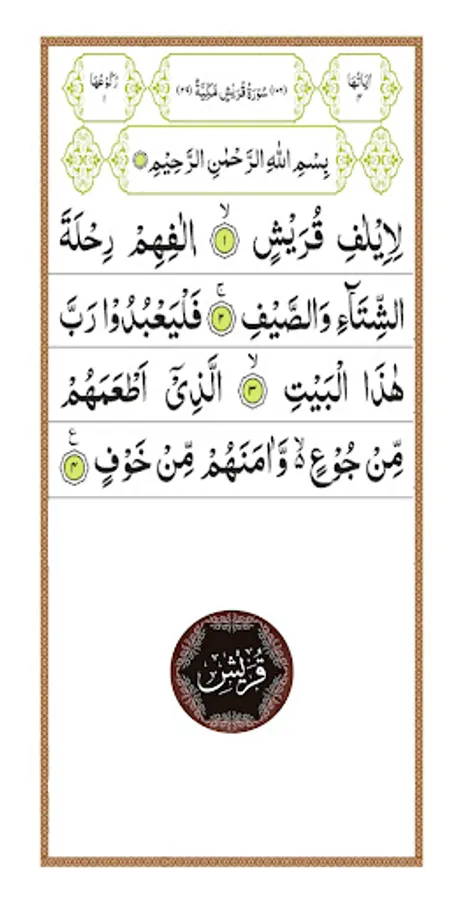 اٰيَاتُهَا ۴ (۱۰۶) سُوْرَةُ قُرَيْشٍ مَّكِّيَّةٌ (۲۹) رُكُوْعُهَا ۱
بِسْمِ اللّٰهِ الرَّحْمٰنِ الرَّحِيْمِ
لِاِيْلٰفِ قُرَيْشٍ ۙ﴿۱﴾ اٖلٰفِهِمْ رِحْلَةَ
الشِّتَآءِ وَالصَّيْفِ ۚ﴿۲﴾ فَلْيَعْبُدُوْا رَبَّ
هٰذَا الْبَيْتِ ۙ﴿۳﴾ الَّذِيْٓ اَطْعَمَهُمْ
مِّنْ جُوْعٍ ۙ۬ وَّاٰمَنَهُمْ مِّنْ خَوْفٍ ﴿۴﴾ ع
قُرَيْشٍ